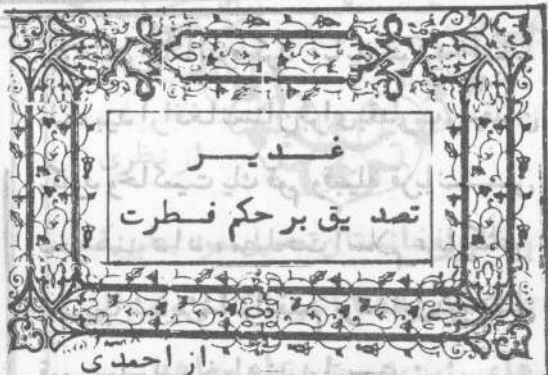 غدیر
تصدیق بر حکم فطرت
از احمدی